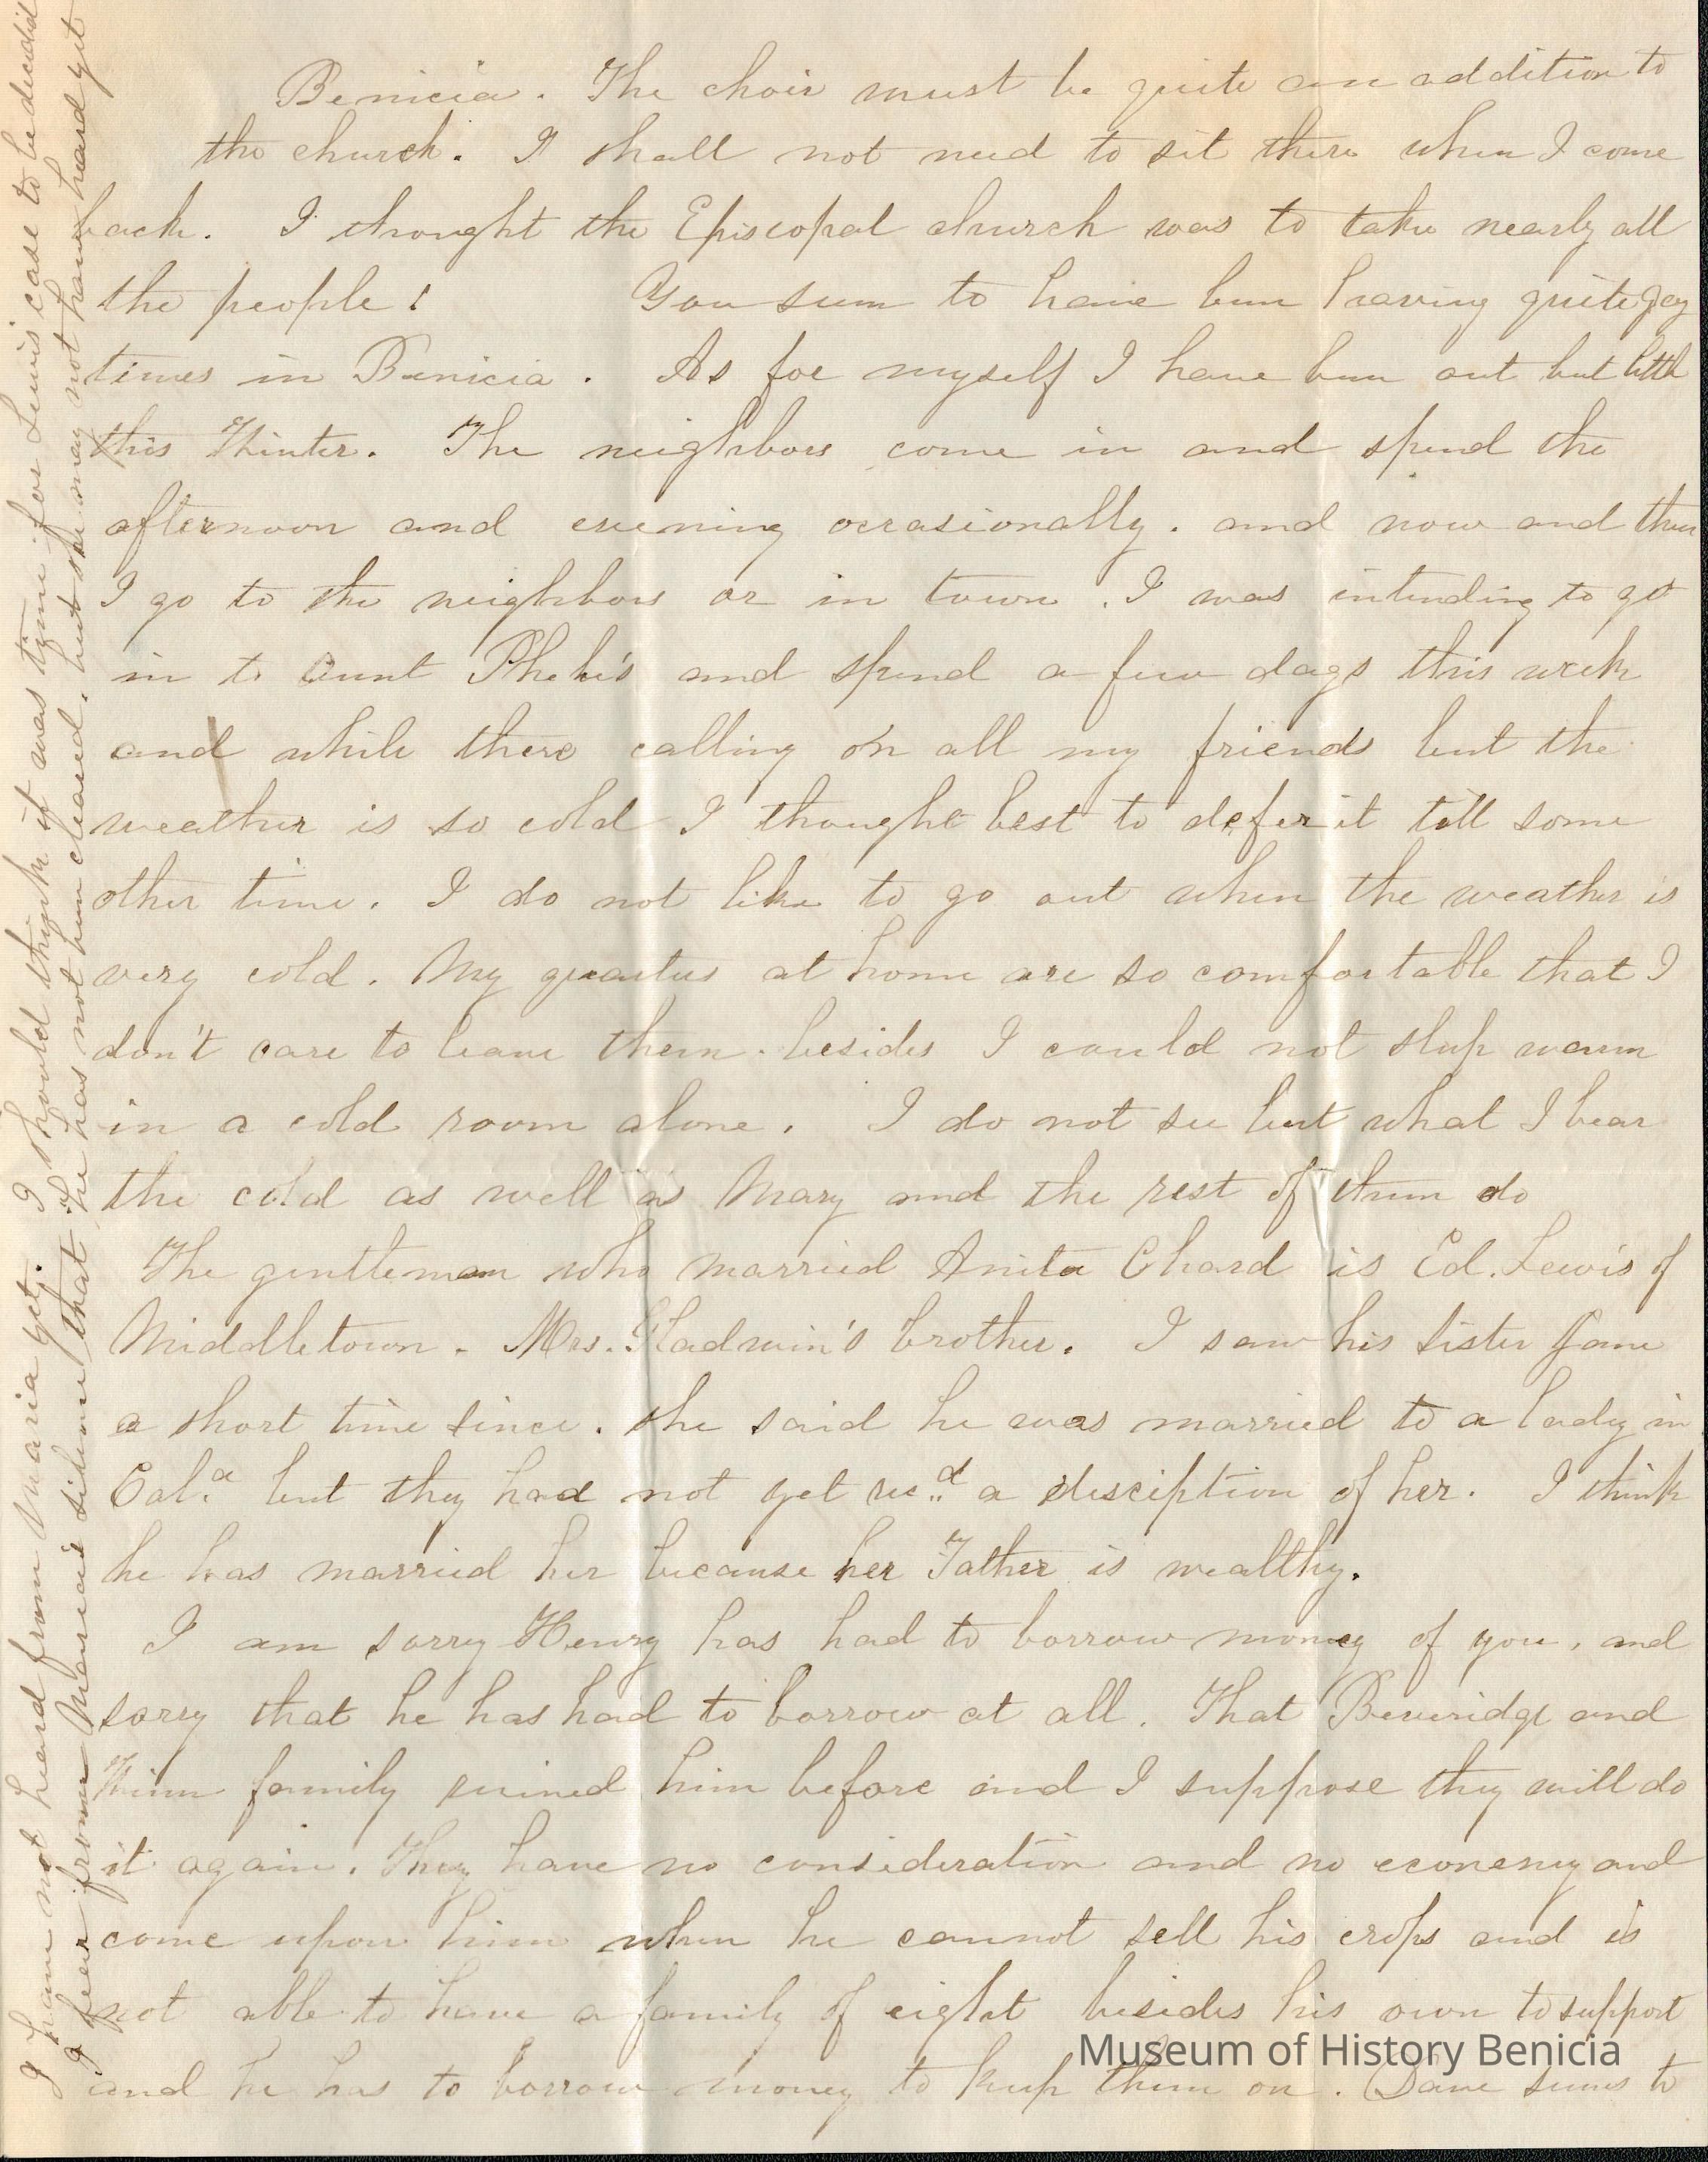 Benicia. The choir must be quite an addition to
the church. I shall not need to sit there when I come
back. I thought the Episcopal church was to take nearly all
the people! You seem to have been having quite gay
times in Benicia. As for myself I have been out but little
this Winter. The neighbors come in and spend the
afternoon and evening occasionally. and now and then
I go to the neighbors or in town. I was intending to go
in to Aunt Phebe's and spend a few days this week
and while there calling on all my friends but the
weather is so cold I thought best to defer it till some
other time. I do not like to go out when the weather is
very cold. My quarters at home are so comfortable that I
don't care to leave them. besides I could not sleep warm
in a cold room alone. I do not see but what I bear
the cold as well as Mary and the rest of them do
The gentleman who married Anita Chard is Ed. Lewis of
Middletown. Mrs. Gladwin's brother. I saw his sister Jane
a short time since. she said he was married to a lady in
Cal.a but they had not yet rec.d a desciption of her. I think
he has married her because her Father is wealthy.
I am sorry Henry has had to borrow money of you, and
sorry that he has had to borrow at all. That Beveridge and
family ruined him before and I suppose they will do
it again. They have no consideration and no economy and
come upon him when he cannot sell his crops and is
not able to have a family of eight besides his own to support
and he has to borrow money to keep them on. Dave seems to
I have not heard from Maria yet. I should think it was time for Lewis' case to be decided
I fear from Maria's silence that he has not been cleared. but she may not have heard yet
Museum of History Benicia